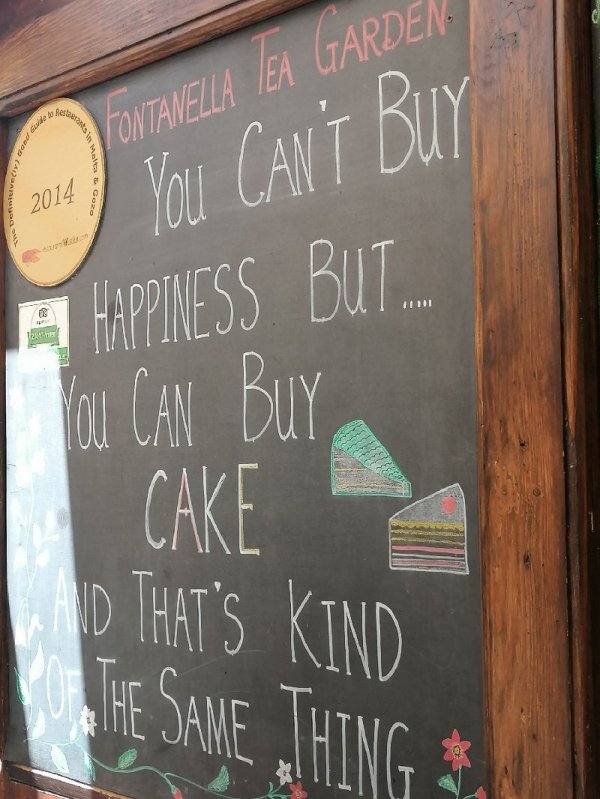 FONTANELLA TEA GARDEN
The Definitive(ly) Good Guide to Restaurants in Malta & Gozo
2014
YOU CAN'T BUY
HAPPINESS BUT.....
YOU CAN BUY
CAKE
AND THAT'S KIND
OF THE SAME THING